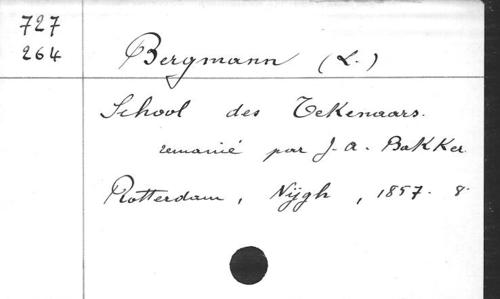 727
264
Bergmann (L.)
School des Tekenaars.
remanié par J. A. Bakker
Rotterdam, Nijgh, 1857. 8°